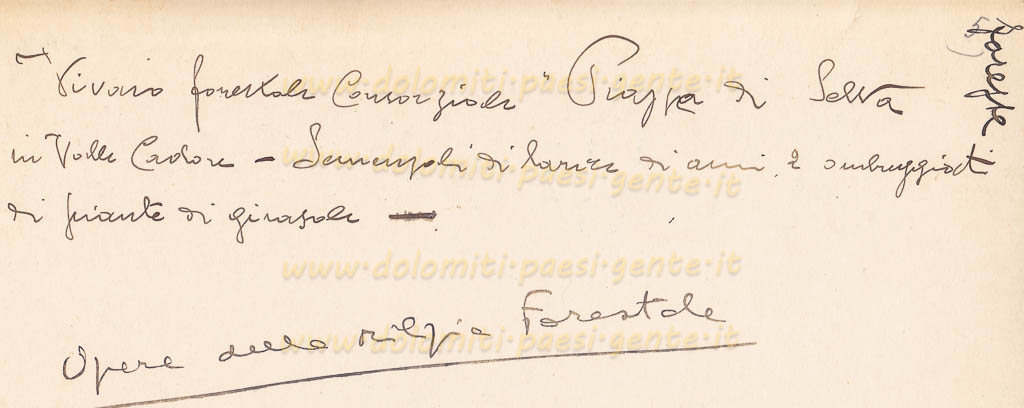 Vivaio forestale Consorziale "Piazza di Selva
in Valle Cadore - Semenzali di larice di anni 2 ombreggiati
di piante di girasole
Opere della milizia Forestale
Foreste
www.dolomiti-paesi-gente.it
www.dolomiti-paesi-gente.it
www.dolomiti-paesi-gente.it
www.dolomiti-paesi-gente.it